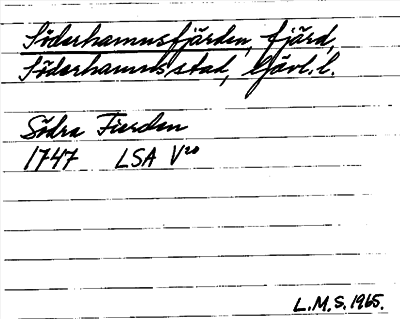 Söderhamnsfjärden, fjärd,
Söderhamns stad, Gävl. l.
Södra Fierden
1747 LSA V²⁰
L.M.S. 1965.